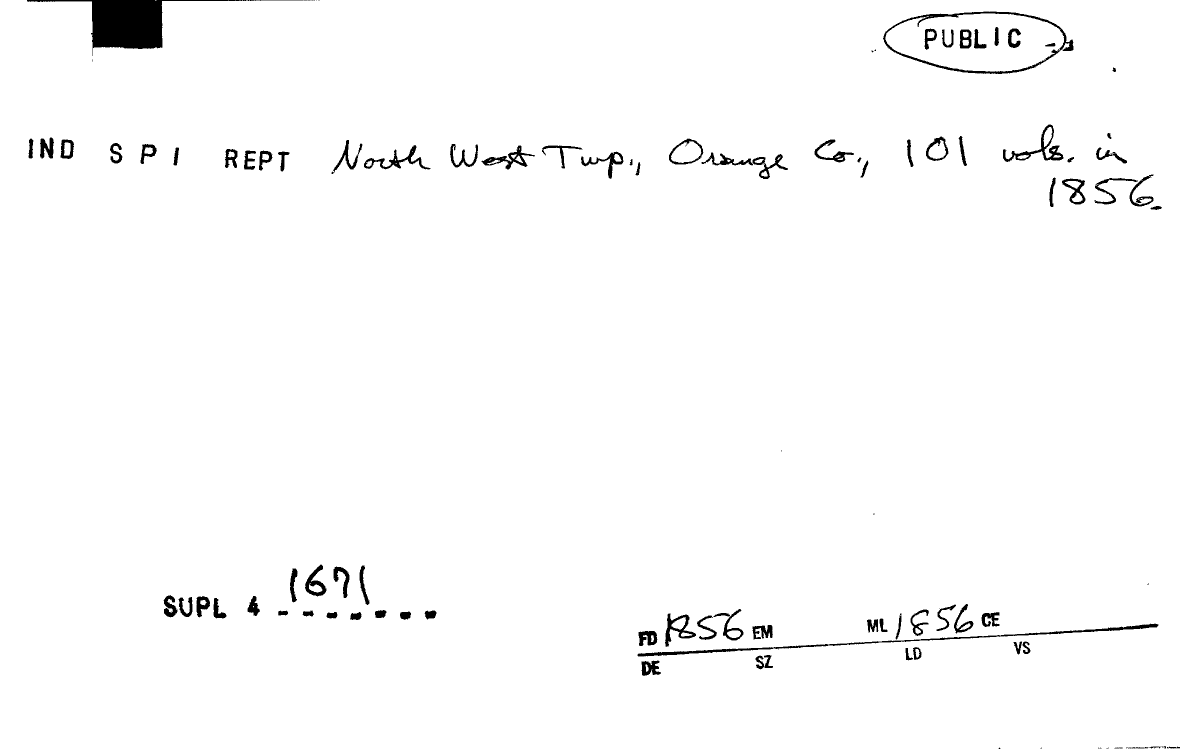 PUBLIC
IND S P I REPT North West Twp., Orange Co., 101 vols. in
1856.
SUPL 4 1671
FD 1856 EM ML 1856 CE
DE SZ LD VS